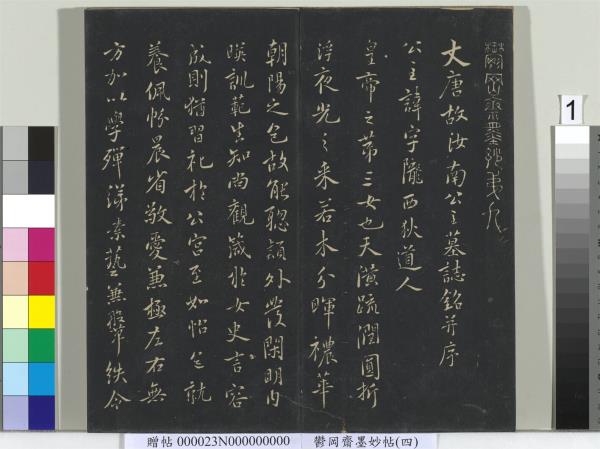 鬱岡齋墨妙弟九
大唐故汝南公主墓誌銘并序
公主諱字隴西狄道人
皇帝之苐三女也天潢疏潤圓折
浮夜光之采若木分暉穠華
朝陽之色故能聦頴外發閑明內
暎訓範生知尚觀箴於女史言容
成則猶習礼於公宮至如怡色就
養佩帉晨省敬愛兼極左右無
方加以學殫綈素藝兼鞶紩令
1
贈帖 000023N000000000 鬱冈齋墨妙帖(四)